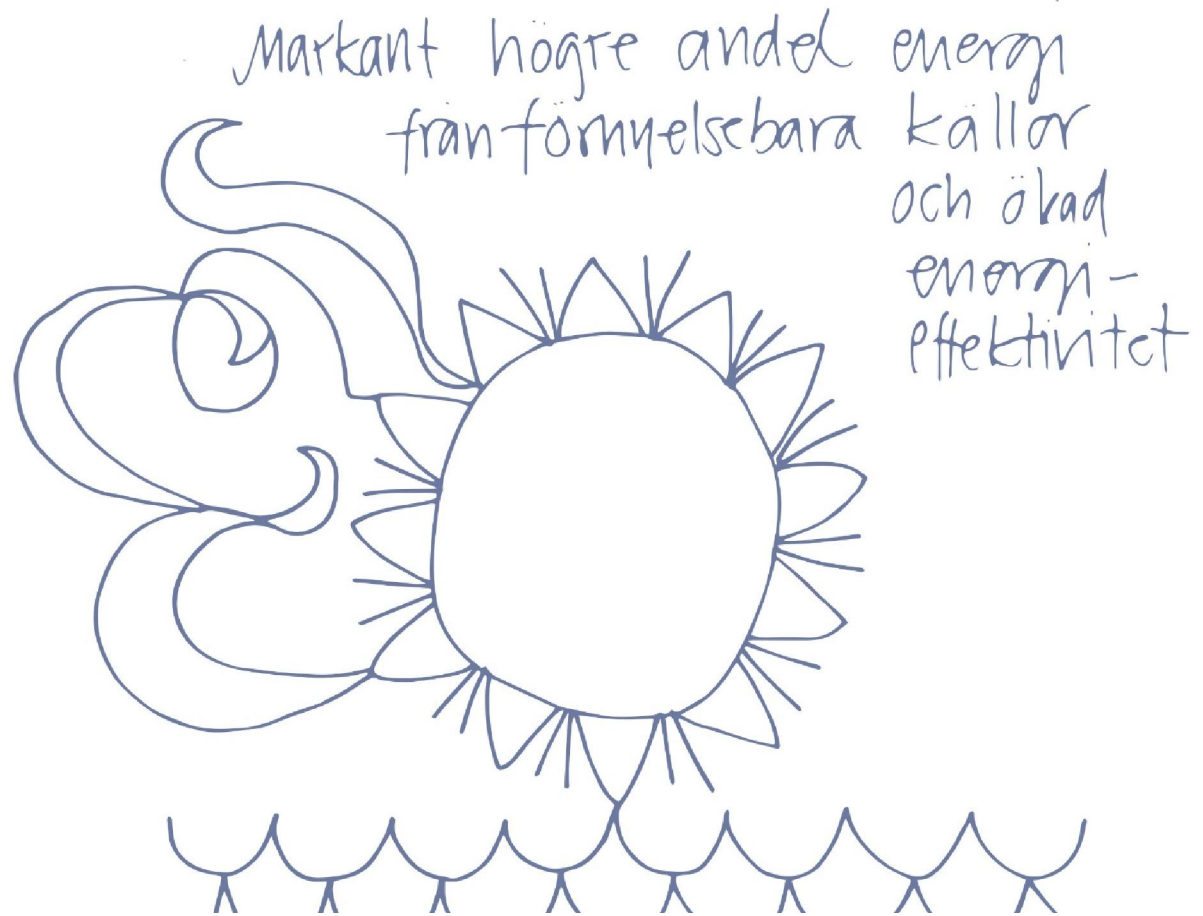 Markant högre andel energi
från förnyelsebara källor
och ökad
energi-
effektivitet